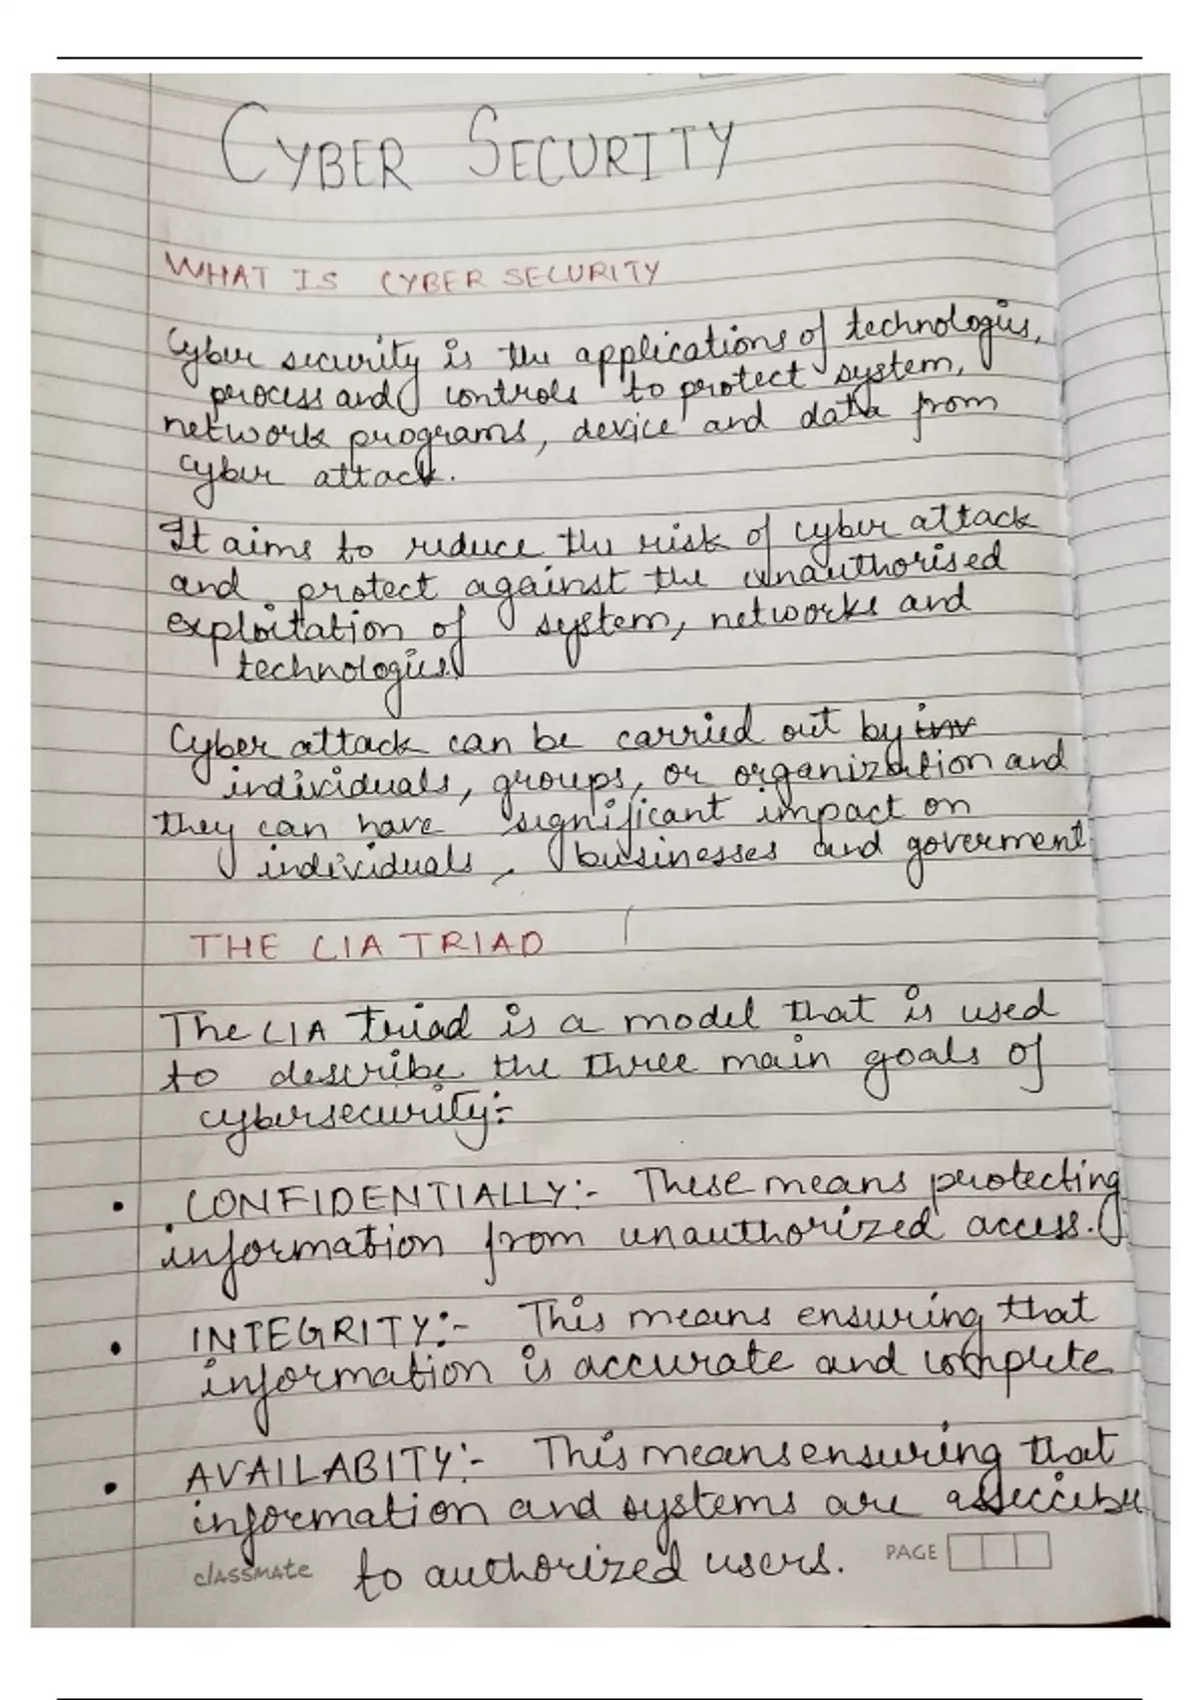 CYBER SECURITY
WHAT IS CYBER SECURITY
Cyber security is the applications of technologies,
process and controls to protect system,
network programs, device and data from
cyber attack.
It aims to reduce the risk of cyber attack
and protect against the unauthorised
exploitation of system, networks and
technologies.
Cyber attack can be carried out by inv
individuals, groups, or organization and
they can have significant impact on
individuals, businesses and goverment.
THE CIA TRIAD
The CIA triad is a model that is used
to describe the three main goals of
cybersecurity:-
• CONFIDENTIALLY:- These means protecting
information from unauthorized access.
• INTEGRITY:- This means ensuring that
information is accurate and complete
• AVAILABITY:- This means ensuring that
information and systems are
classmate to authorized users. PAGE